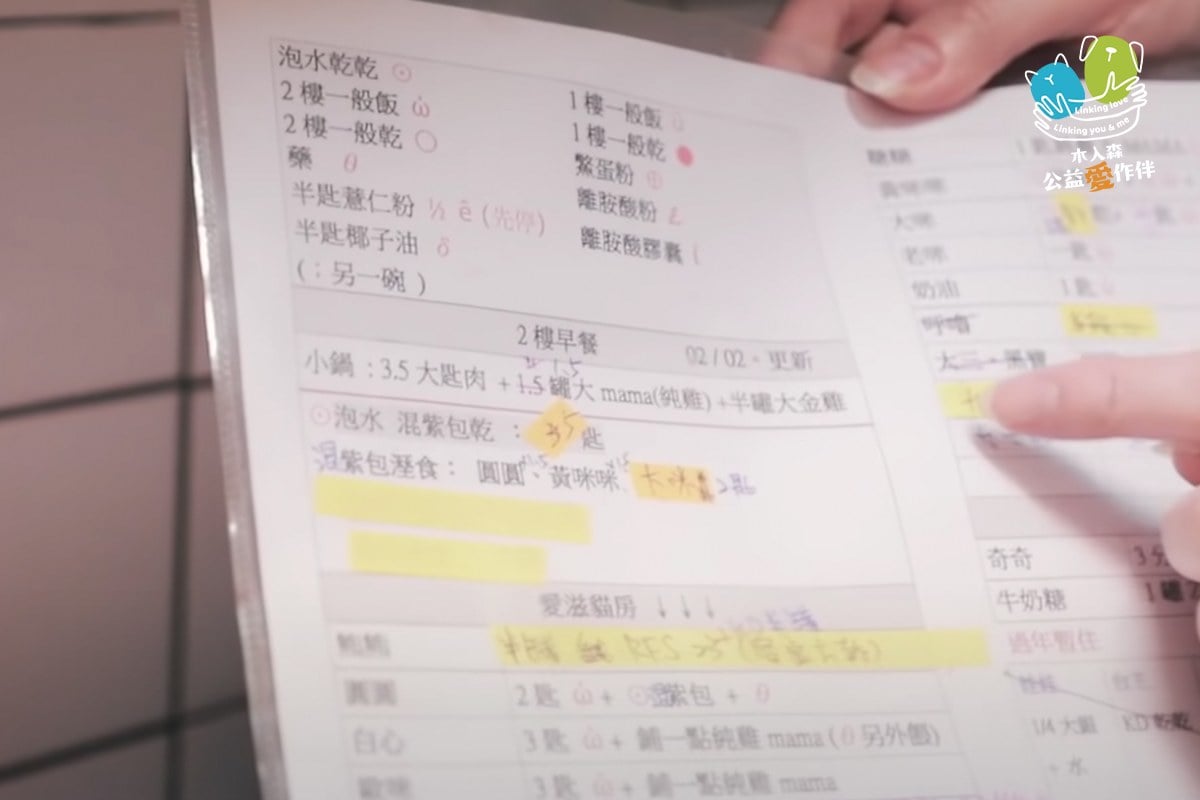 泡水乾乾 ⊙
2樓一般飯 ώ
2樓一般乾 ○
藥 θ
半匙薏仁粉 ½ ê (先停)
半匙椰子油 δ
(：另一碗 )
1樓一般飯
1樓一般乾 ●
鱉蛋粉 ⊕
離胺酸粉 ℓ
離胺酸膠囊 i
2樓早餐 02/02。更新
小鍋：3.5大匙肉 +1.5罐大mama(純雞)+半罐大金雞
⊙泡水 混紫包乾 ：35匙
混紫包溼食： 圓圓、黃咪咪、大咪 2匙
愛滋貓房 ↓↓↓
圓圓 2匙 ώ+ ⊙混紫包 + θ
白心 3匙 ώ+ 鋪一點純雞mama (θ另外餵)
3匙 ώ+ 鋪一點純雞mama
糖糖
黃咪咪
大咪
老咪
奶油 1匙
呼嚕
奇奇 3分
牛奶糖 1罐
過年暫住
1/4大銀 KD乾乾
+水
Linking love
Linking you & me
木入森
公益愛作伴